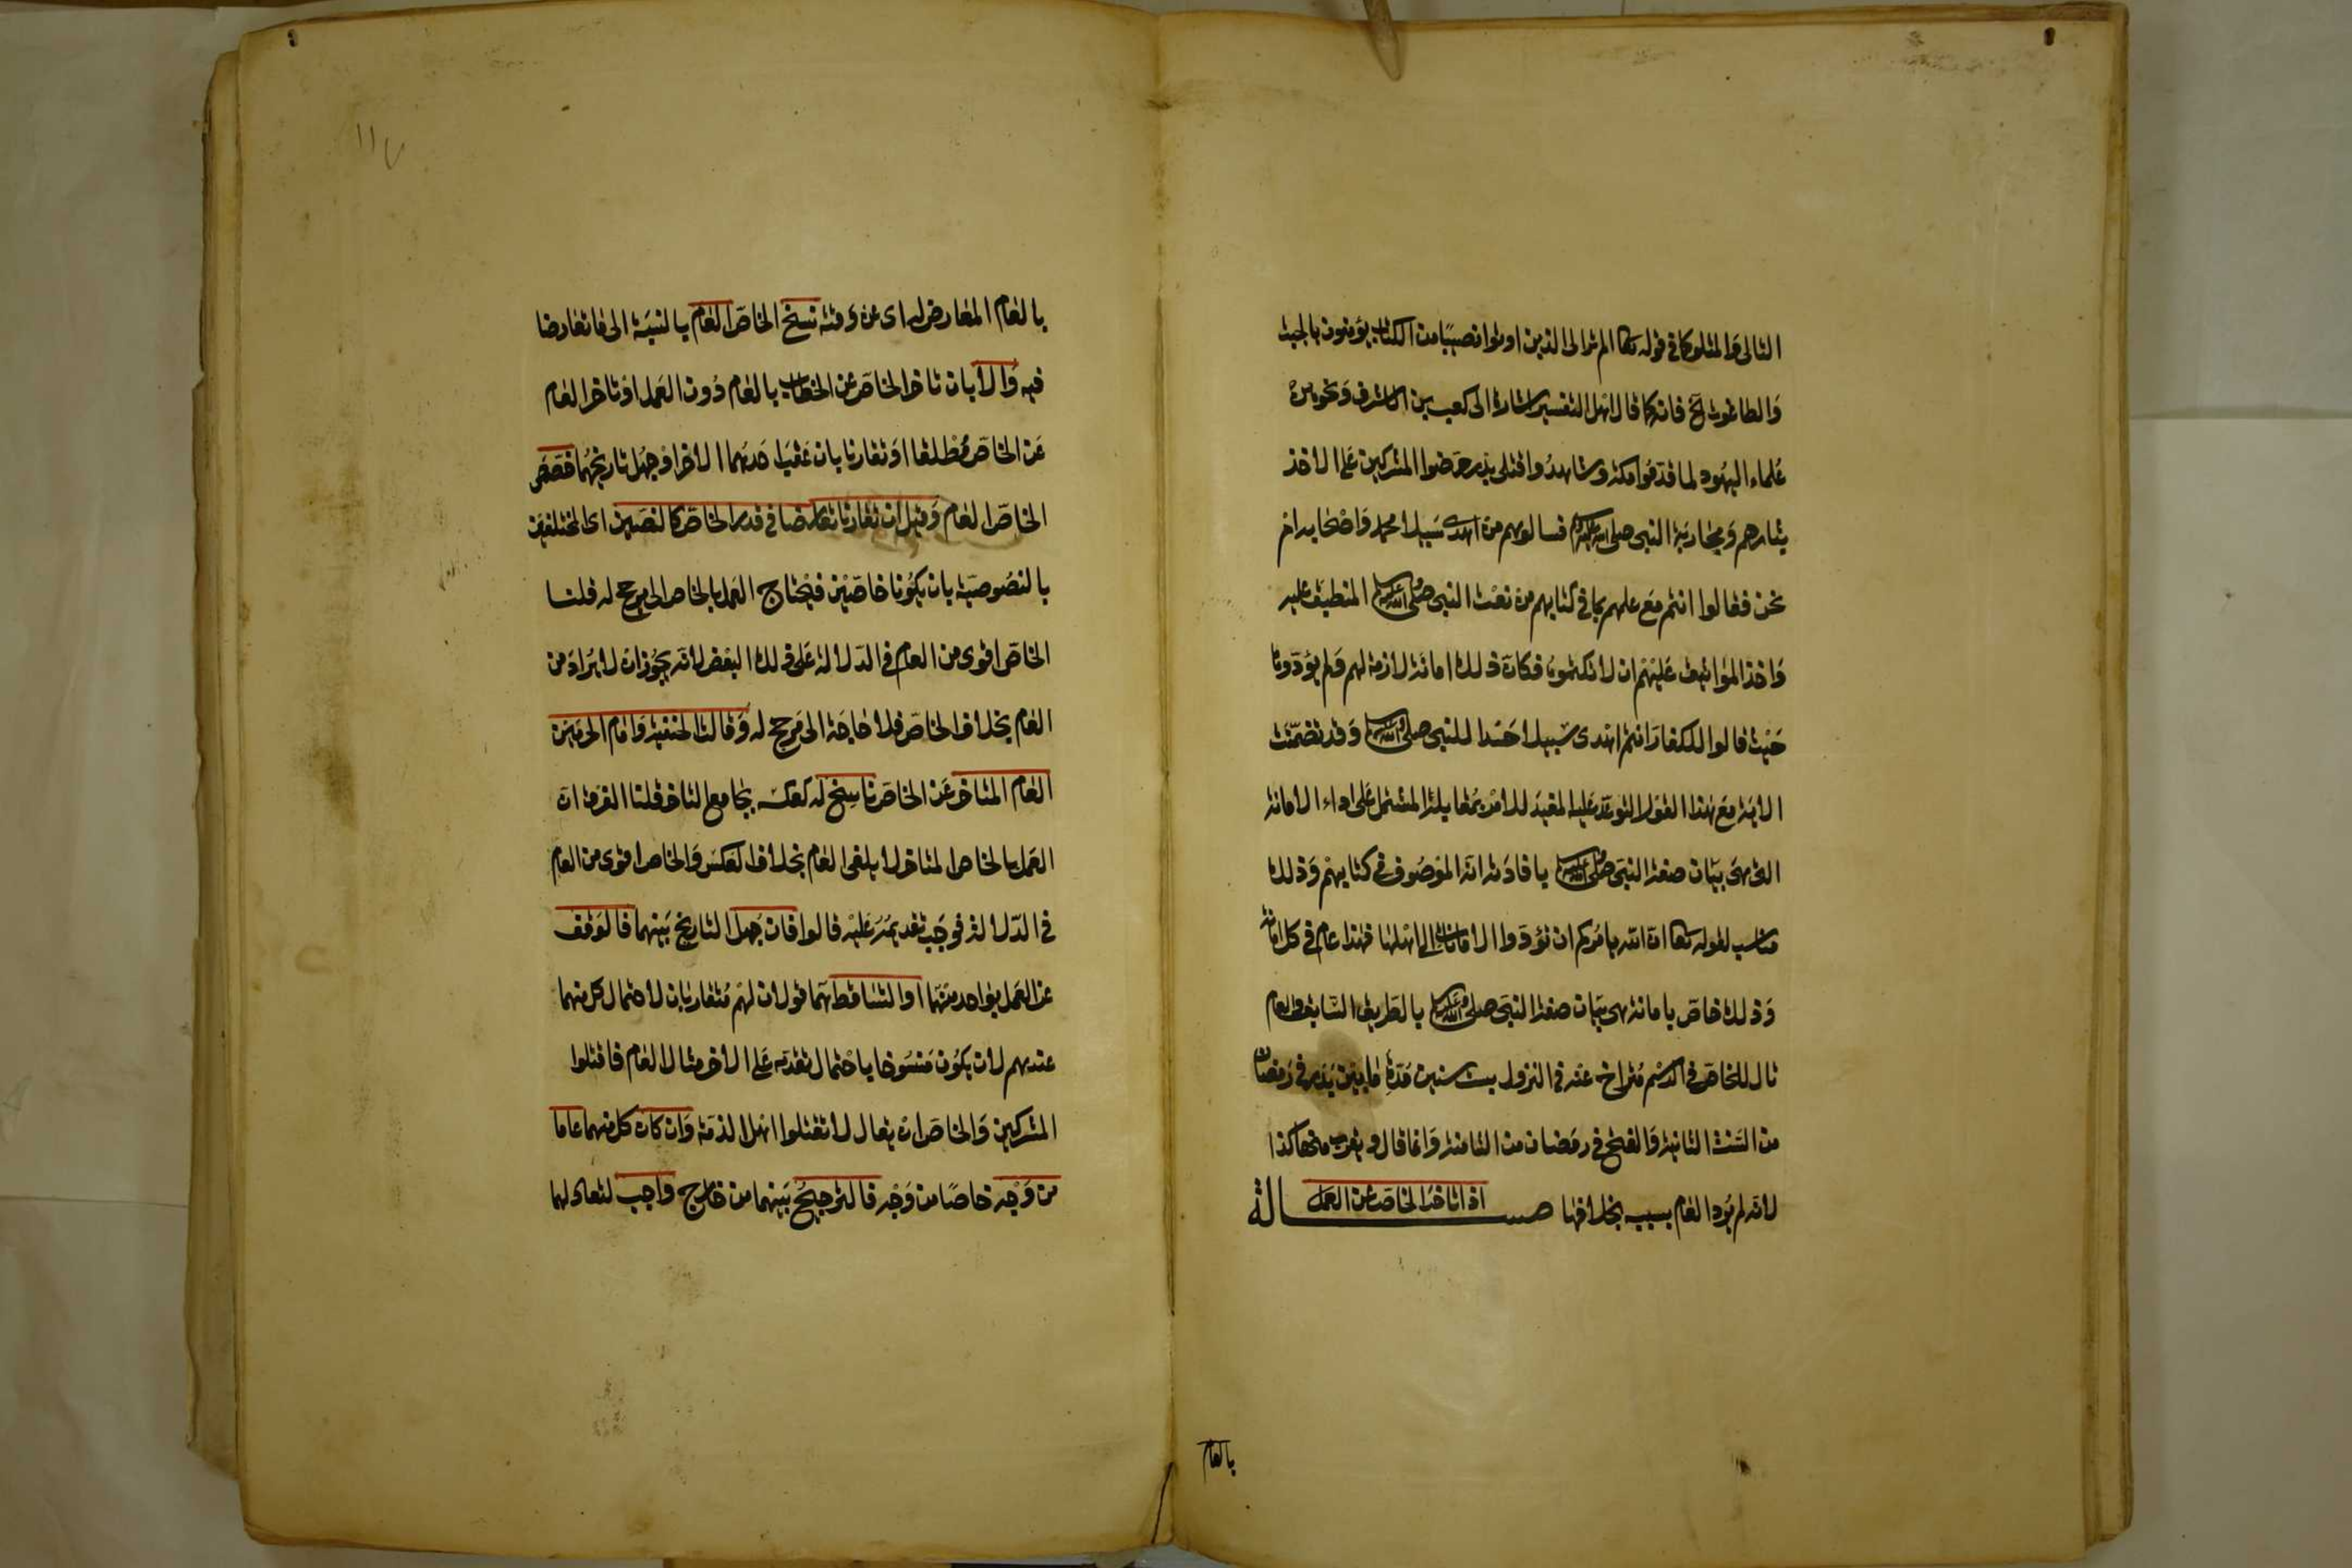 التالى والمتلو كما فى قوله تعا الم تر الى الذين اوتوا نصيبا من الكتاب يؤمنون بالجبت
والطاغوت الخ فانه كما قال اهل التفسير اشارة الى كعب بن الاشرف ونحوه من
علماء اليهود لما قدموا مكة وشاهدوا قتلى بدر حرضوا المشركين على الاخذ
بثارهم ومحاربة النبى صلى الله عليه وسلم فسالوهم من اهدى سبيلا محمد واصحابه ام
نحن فقالوا انتم مع علمهم بما فى كتابهم من نعت النبى صلى الله عليه وسلم المنطبق عليه
واخذ المواثيق عليهم ان لا يكتموه فكان ذلك امانة لازمة لهم ولم يؤدوها
حيث قالوا للكفار انتم اهدى سبيلا حسدا للنبى صلى الله عليه وسلم وقد تضمنت
الاية مع هذا القول التوعد عليه المفيد للامر بمقابله المشتمل على اداء الامانة
التى هى بيان صفة النبى صلى الله عليه وسلم بافادته انه الموصوف فى كتابهم وذلك
مناسب لقوله تعا ان الله يامركم ان تؤدوا الامانات الى اهلها فهذا عام فى كل امانة
وذلك خاص بامانة هى بيان صفة النبى صلى الله عليه وسلم بالطريق السابق والعام
تال للخاص فى الرسم متراخ عنه فى النزول بست سنين مدة ما بين بدر فى رمضان
من السنة الثانية والفتح فى رمضان من الثامنة وانما قال ويقرب منها كذا
لانه لم يرد العام بسبب بخلافها مسالة اذا تاخر الخاص عن العمل
بالعام
١١٧
بالعام المعارض له اى عن وقته نسخ الخاص العام بالنسبة الى ما تعارضا
فيه والا بان تاخر الخاص عن الخطاب بالعام دون العمل او تاخر العام
عن الخاص مطلقا او تقارنا بان عقب احدهما الاخر او جهل تاريخهما خصص
الخاص العام وقيل ان تقارنا تعارضا فى قدر الخاص كالنصين اى المختلفين
بالنصوصية بان يكونا خاصين فيحتاج العمل بالخاص الى مرجح له قلنا
الخاص اقوى من العام فى الدلالة على ذلك البعض لانه يجوز ان لا يراد من
العام بخلاف الخاص فلا حاجة الى مرجح له وقالت الحنفية وامام الحرمين
العام المتاخر عن الخاص ناسخ له كعكسه بجامع التاخر قلنا الفرق ان
العمل بالخاص المتاخر لا يلغى العام بخلاف العكس والخاص اقوى من العام
فى الدلالة فوجب تقديمه عليه قالوا فان جهل التاريخ بينهما فالوقف
عن العمل بواحد منهما او التساقط لهما قولان لهم متقاربان لاحتمال كل منهما
عندهم لان يكون منسوخا باحتمال تقدمه على الاخر مثال العام فاقتلوا
المشركين والخاص ان يقال لا تقتلوا اهل الذمة وان كان كل منهما عاما
من وجه خاصا من وجه فالترجيح بينهما من خارج واجب لتعادلهما